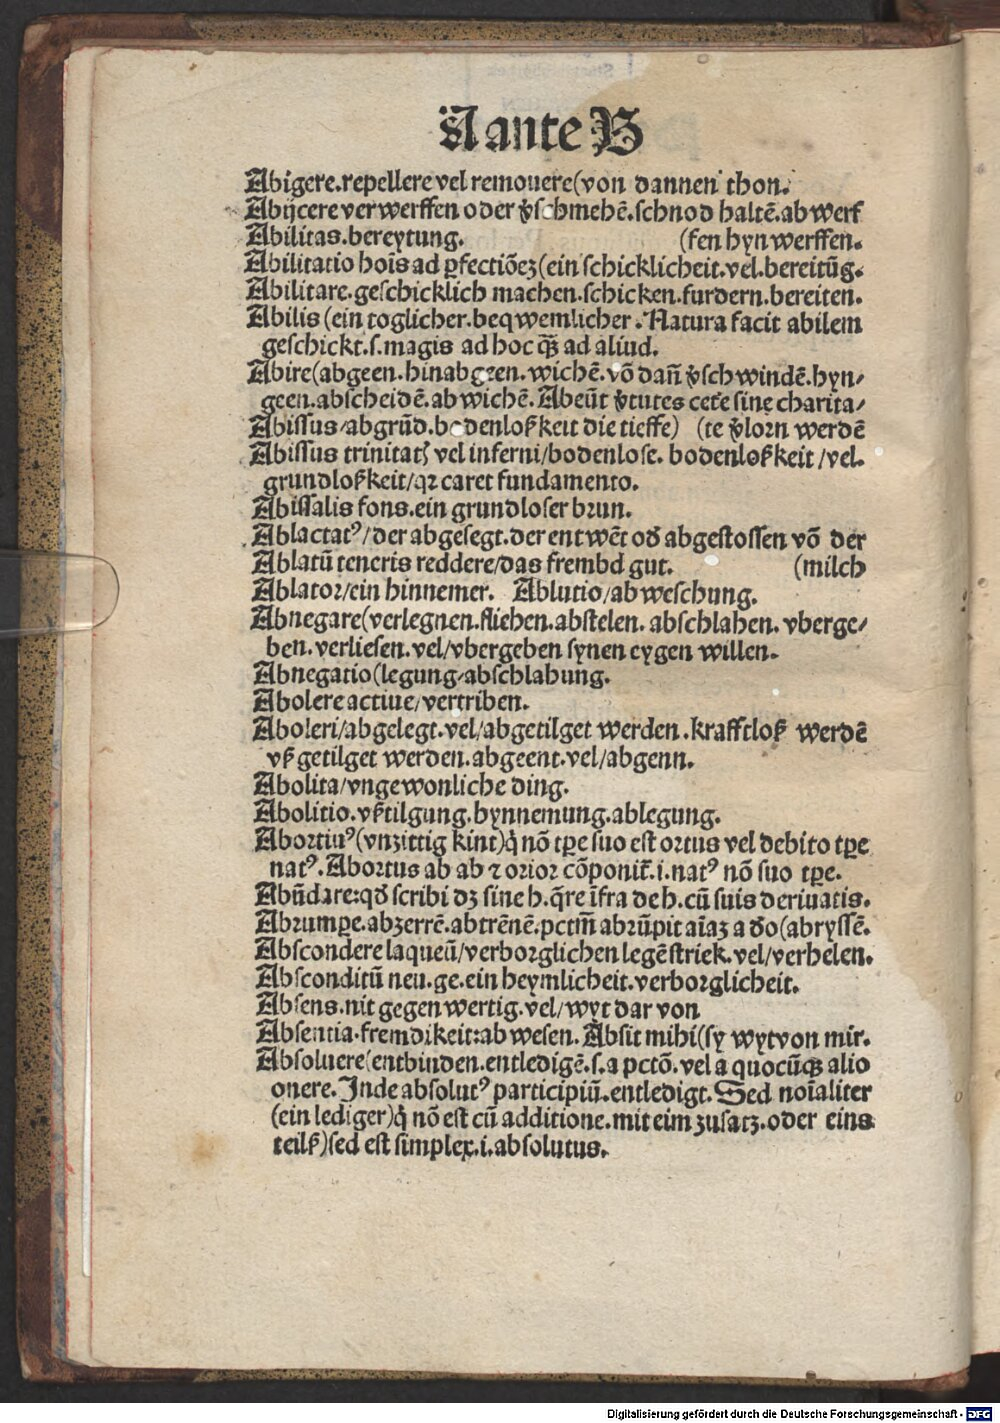 A ante B
Abigere.repellere vel remouere(von dannen thon.
Abijcere verwerffen oder v̈schmehē.schnod haltē.abwerf
Abilitas.bereytung. (fen hyn werffen.
Abilitatio hoīs ad ꝑfectiōeꝫ(ein schicklicheit.vel.bereitūg.
Abilitare.geschicklich machen.schicken.furdern.bereiten.
Abilis (ein toglicher.beqwemlicher.Natura facit abilem
geschickt.s.magis ad hoc qꝫ̄ ad aliud.
Abire(abgeen.hinabgeen.wichē.vō dañ v̈schwindē.hyn/
geen.abscheidē.abwichē.Abeūt v̈tutes ceťe sine charita/
Abissus/abgrūd.bodenloßkeit die tieffe) (te v̈lorn werdē
Abissus trinitatꝭ vel inferni/bodenlose. bodenloßkeit/vel.
grundloßkeit/qꝛ caret fundamento.
Abissalis fons.ein grundloser brun.
Ablactatꝰ/der abgesegt.der entwēt oď abgestossen vō der
Ablatū teneris reddere/das frembd gut. (milch
Ablator/ein hinnemer. Ablutio/abweschung.
Abnegare(verlegnen.fliehen.abstelen. abschlahen. vberge/
ben.verliesen.vel/vbergeben synen eygen willen.
Abnegatio(legung/abschlahung.
Abolere actiue/vertriben.
Aboleri/abgelegt.vel/abgetilget werden.krafftloß werdē
vß getilget werden.abgeent.vel/abgenn.
Abolita/vngewonliche ding.
Abolitio.vßtilgung.hynnemung.ablegung.
Abortiuꝰ(vnzittig kint)q̇ nō tꝑe suo est ortus vel debito tꝑe
natꝰ.Abortus ab ab ⁊ orior cōponiť.i.natꝰ nō suo tꝑe.
Abūdare:qď scribi dꝫ sine h.q̄re īfra de h.cū suis deriuatis.
Abrumꝑe.abzerrē.abtrēnē.pctm̄ abrūpit aīaꝫ a ďo(abryssē.
Abscondere laqueū/verborglichen legē strick.vel/verhelen.
Absconditū neu.ge.ein heymlicheit.verborglicheit.
Absens.nit gegenwertig.vel/wyt dar von
Absentia.fremdikeit:abwesen.Absit mihi(sy wyt von mir.
Absoluere(entbinden.entledigē.s.a pctō.vel a quocūqꝫ alio
onere.Inde absolutꝰ participiū.entledigt.Sed noīaliter
(ein lediger)q̇ nō est cū additione.mit eim zusatz.oder eins
teilß)sed est simplex.i.absolutus.
Digitalisierung gefördert durch die Deutsche Forschungsgemeinschaft - DFG